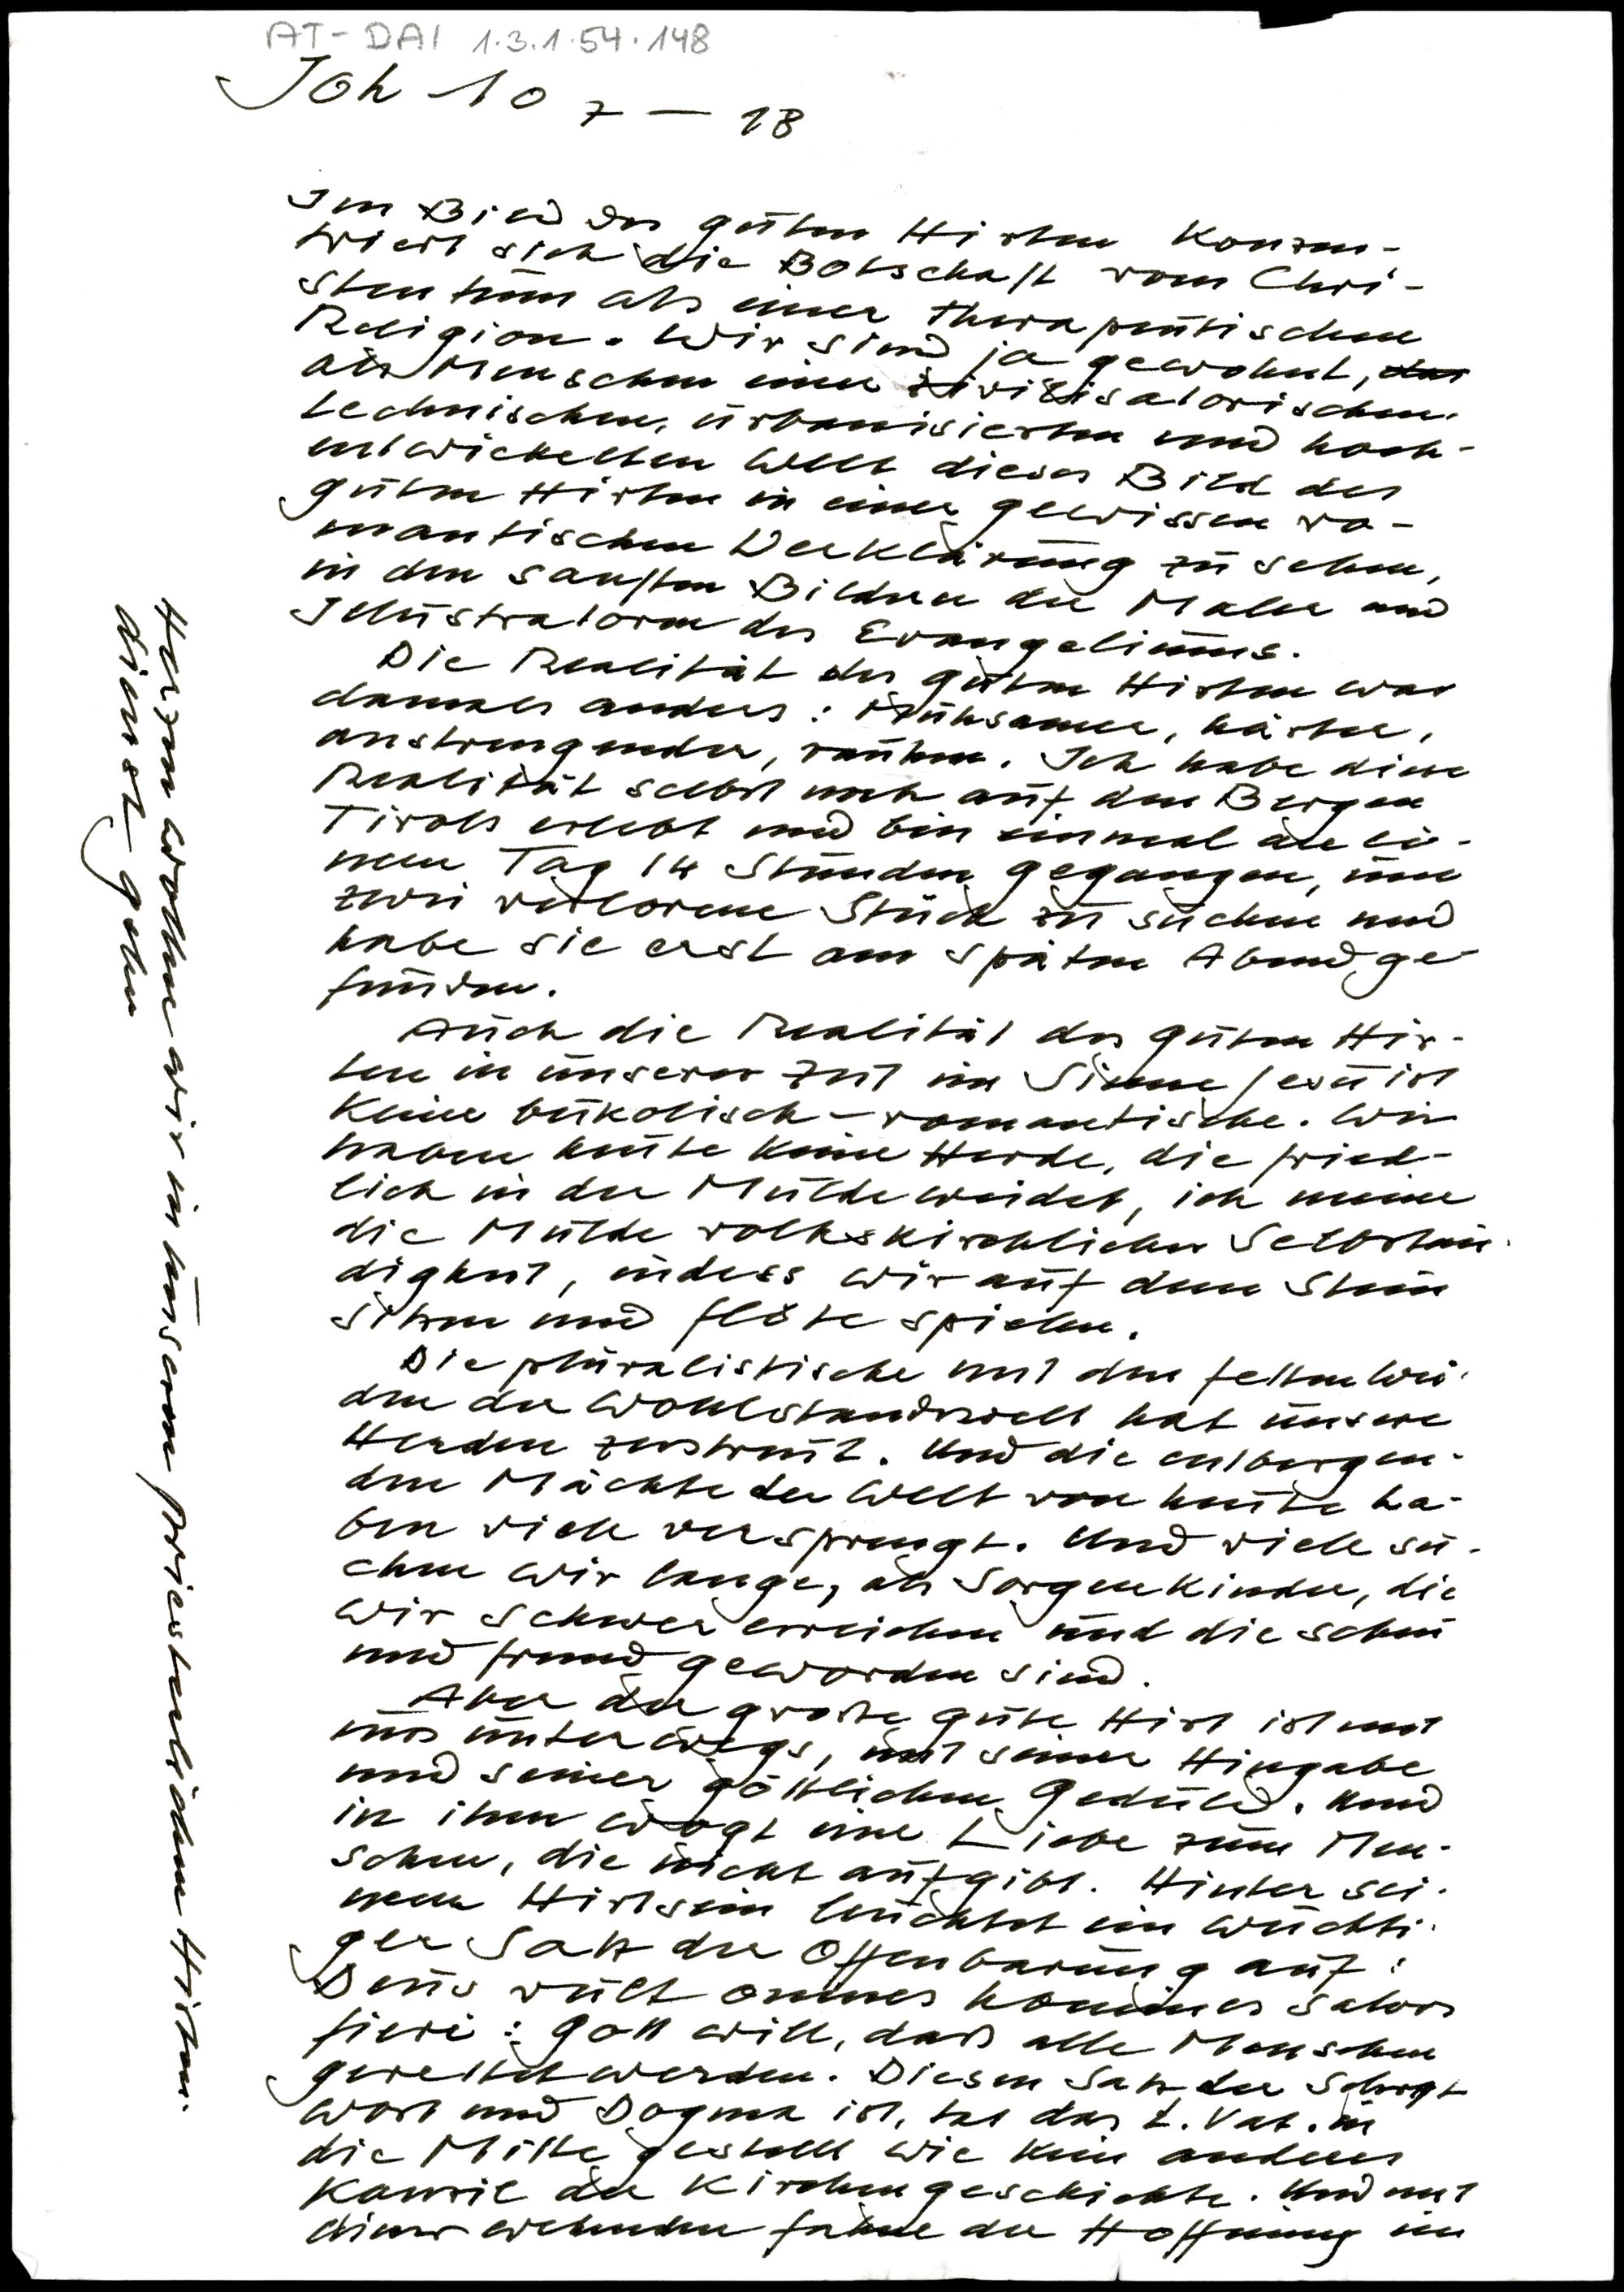 AT-DAI 1.3.1.54.148
Joh 10 7 — 18
Im Bild des guten Hirten konzen-
triert sich die Botschaft vom Chri-
stentum als einer therapeutischen
Religion. Wir sind ja gewohnt, das
als Menschen einer zivilisatorischen,
technischen, urbanisierten und hoch-
entwickelten Welt dieses Bild des
guten Hirten in einer gewissen ro-
mantischen Verklärung zu sehen,
in den sanften Bildern der Maler und
Illustratoren des Evangeliums.
Die Realität des guten Hirten war
damals anders: Mühsamer, härter,
anstrengender, rauher. Ich habe diese
Realität selbst noch auf den Bergen
Tirols erlebt und bin einmal an ei-
nem Tag 14 Stunden gegangen, um
zwei verlorene Stück zu suchen und
habe sie erst am späten Abend ge-
funden.
Auch die Realität des guten Hir-
ten in unserer Zeit im Sinne Jesu ist
keine bukolisch-romantische. Wir
haben heute keine Herde, die fried-
lich in der Mulde weidet, ich meine
die Mulde volkskirchlicher Selbstän-
digkeit, indess wir auf dem Stein
sitzen und Flöte spielen.
Die pluralistische mit den fetten Wei-
den der Wohlstandswelt hat unsere
Herden zerstreut. Und die entbergen-
den Mächte der Welt von heute ha-
ben viele versprengt. Und viele su-
chen wir lange, als Sorgenkinder, die
wir schwer erreichen und die scheu
und fremd geworden sind.
Aber der große gute Hirt ist mit
uns unterwegs, mit seiner Hingabe
und seiner göttlichen Geduld. Und
in ihm wogt eine Liebe zum Men-
schen, die nicht aufgibt. Hinter sei-
nem Hirtsein leuchtet ein wuchti-
ger Satz der Offenbarung auf:
Deus vult omnes homines salvos
fieri: Gott will, daß alle Menschen
gerettet werden. Diesen Satz der Schrift
Wort und Dogma ist, hat das 2. Vat. in
die Mitte gestellt wie kein anderes
Konzil der Kirchengeschichte. Und mit
dieser wehenden Fahne der Hoffnung im
Herzen wollen wir in unseren priesterlichen Hirten-
dienst gehn